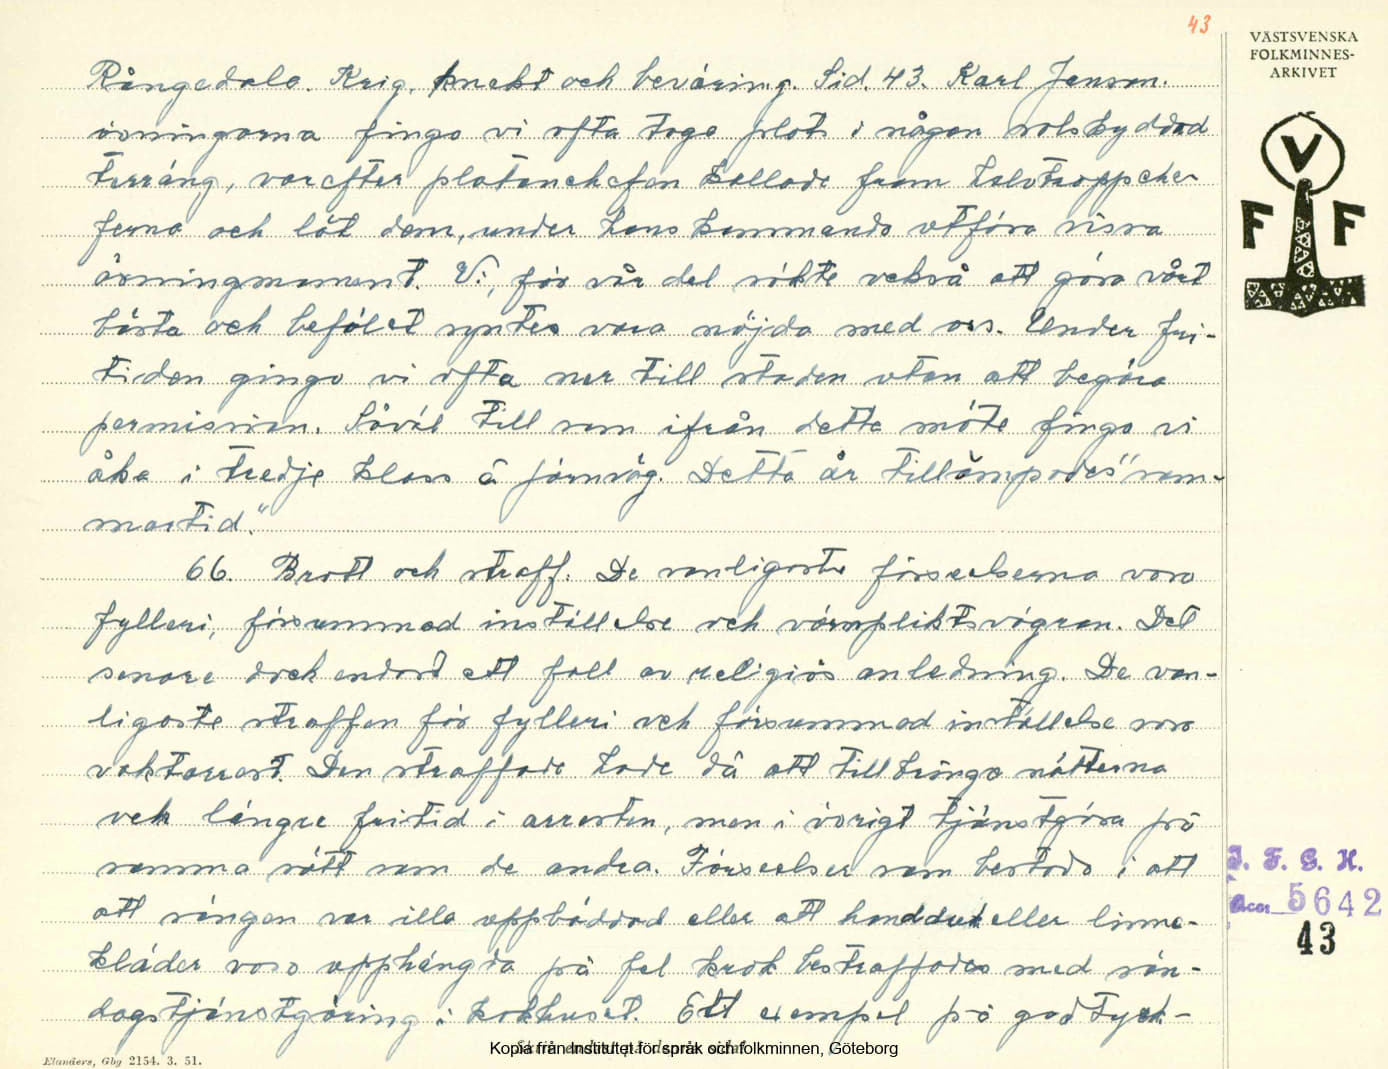 43
VÄSTSVENSKA
FOLKMINNES-
ARKIVET
V
F F
Rångedala. Krig, knekt och beväring. Sid. 43. Karl Jonson.
övningarna fingo vi ofta taga plats i någon solskyddad
terräng, varefter plutonchefen kallade fram halvtroppche-
ferna och lät dem, under hans kommando utföra vissa
övningmoment. Vi, för vår del sökte också att göra vårt
bästa och befälet syntes vara nöjda med oss. Under fri-
tiden gingo vi ofta ner till staden utan att begära
permission. Såväl till som ifrån detta möte fingo vi
åka i tredje klass å järnväg. Detta år tillämpades "som-
martid."
66. Brott och straff. De vanligaste förseelserna voro
fylleri, försummad inställelse och värnpliktsvägran. Det
senare dock endast ett fall av religiös anledning. De van-
ligaste straffen för fylleri och försummad inställelse voro
vaktarrest. Den straffade hade då att tillbringa nätterna
och längre fritid i arresten, men i övrigt tjänstgöra på
samma sätt som de andra. Förseelser som bestodo i att
att sängen var illa uppbäddad eller att handduk eller linne-
kläder voro upphängda på fel krok bestraffades med sön-
dagstjänstgöring i kokhuset. Ett exempel på godtyck-
I. F. G. H.
Acc. 5642
43
Elanders, Gbg 2154. 3. 51.
Kopia från Institutet för språk och folkminnen, Göteborg